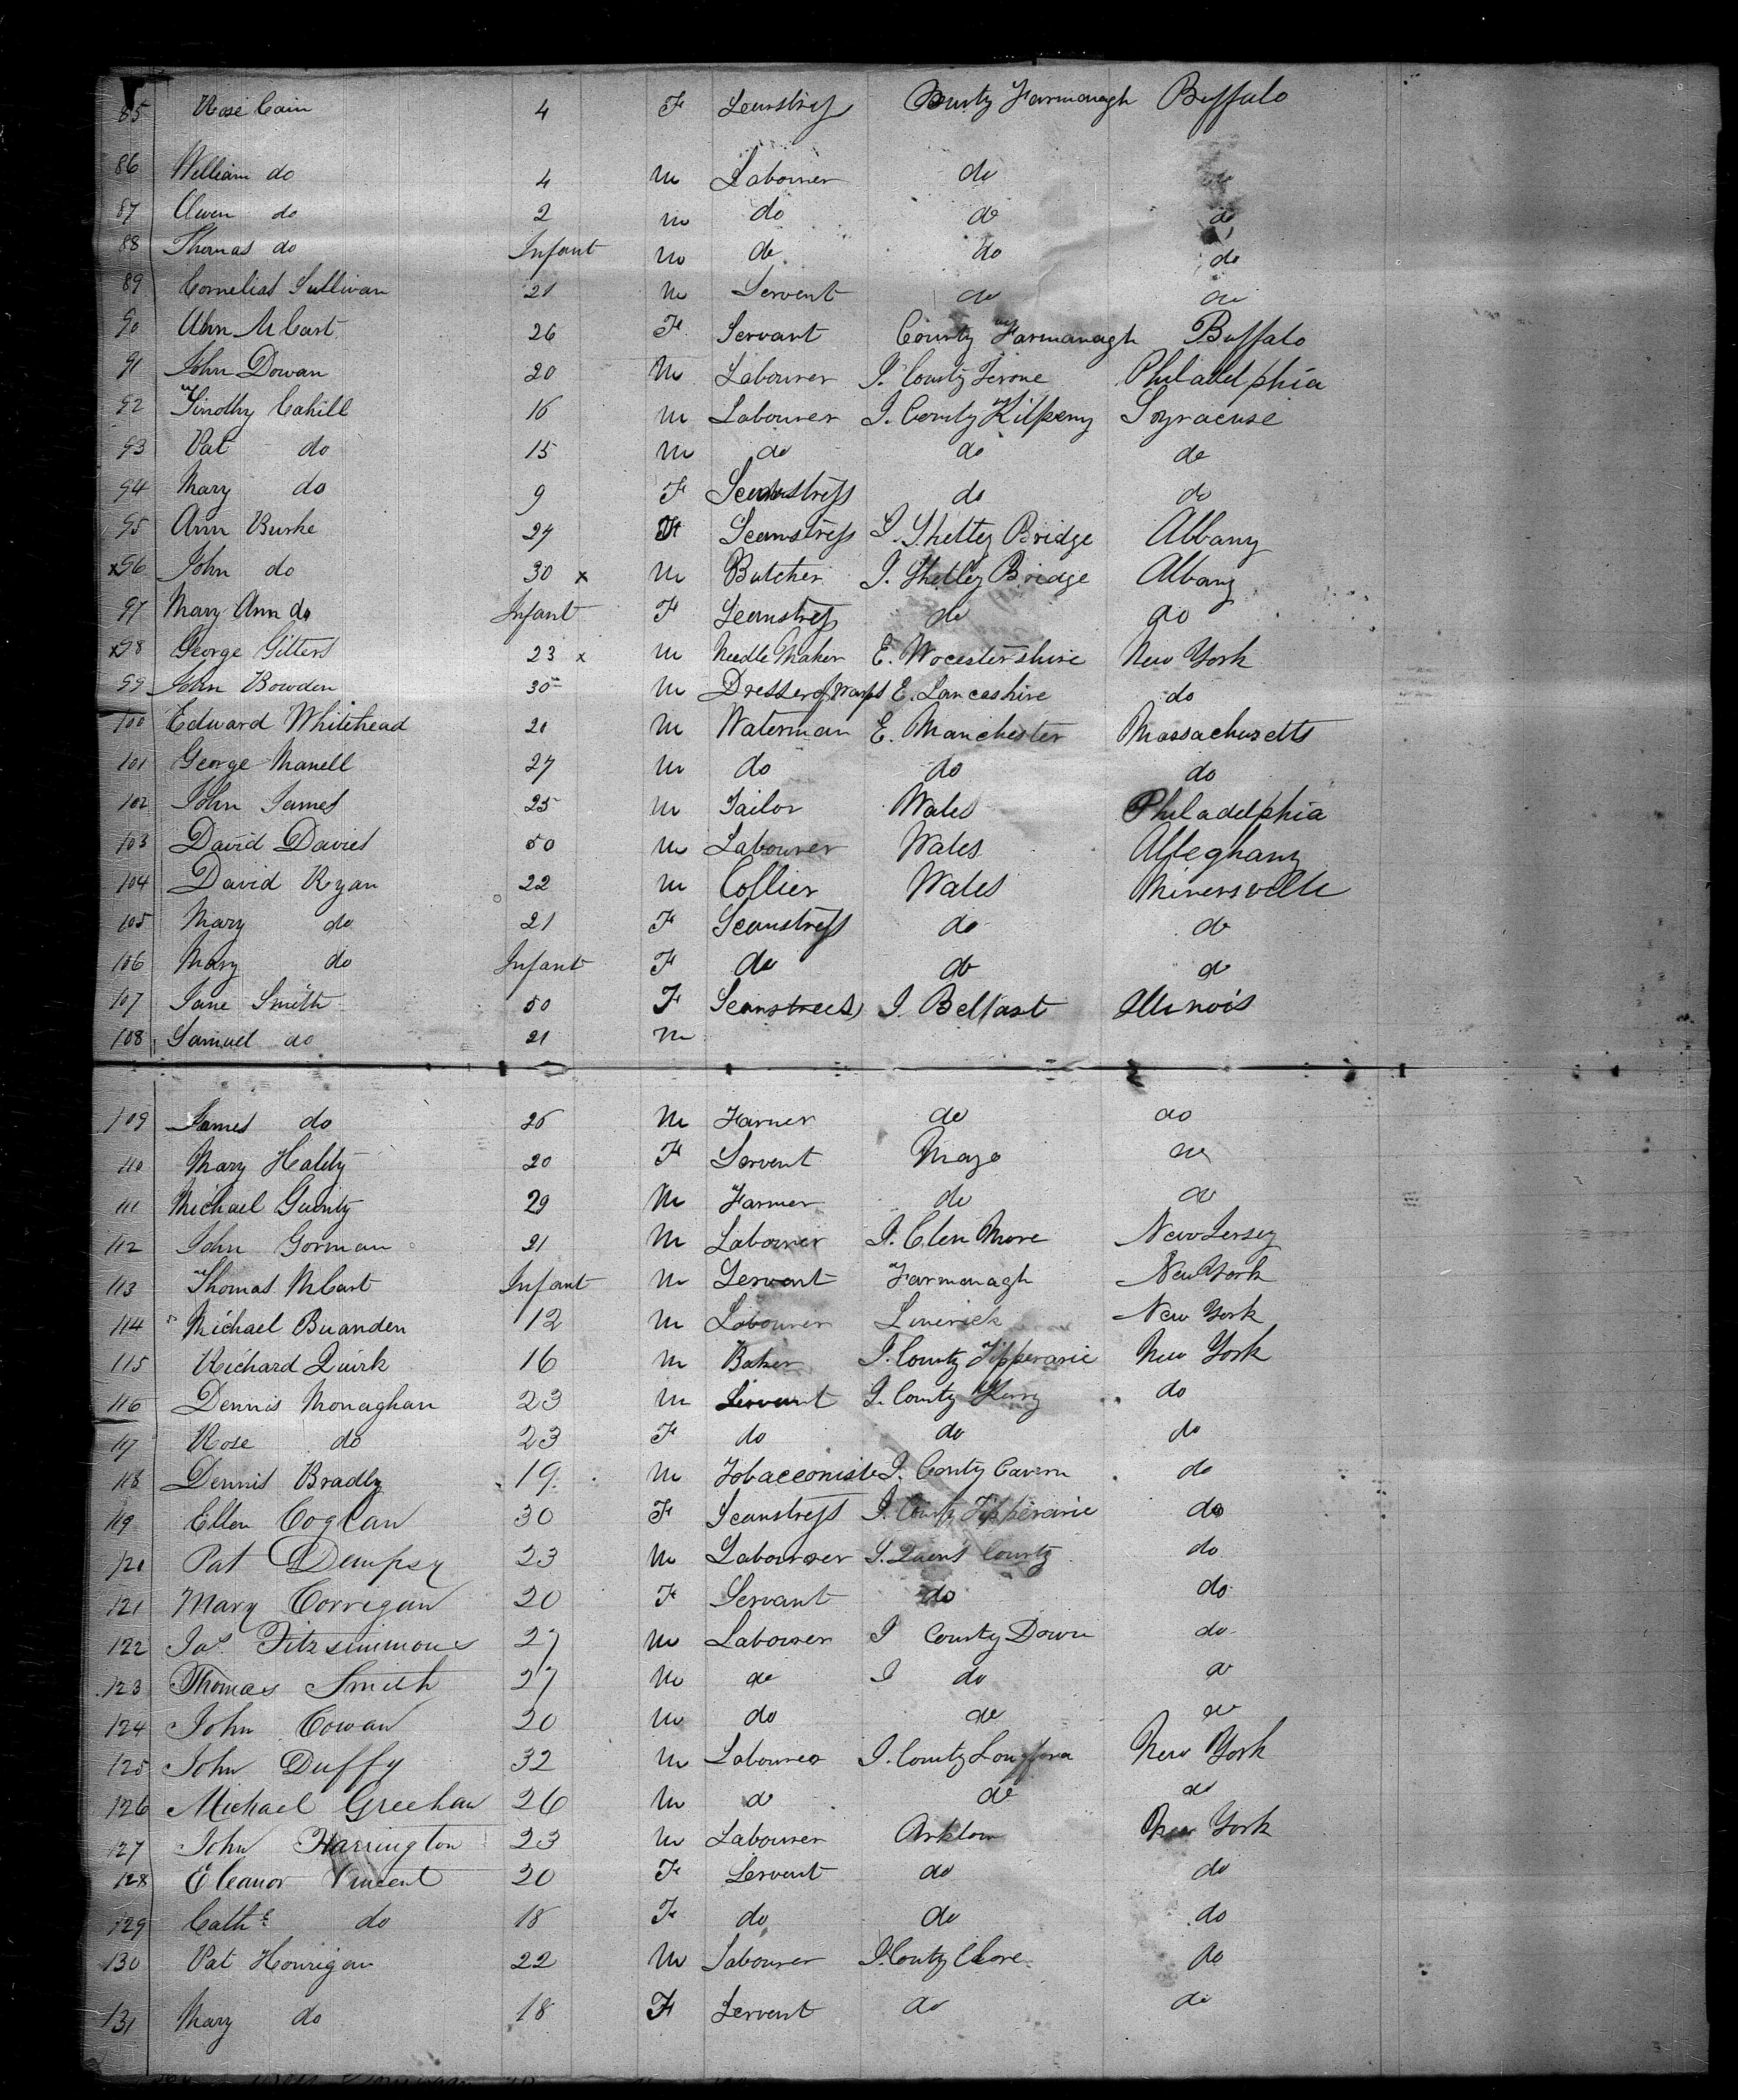 85 Rose Cain 4 F Seamstress County Farmanagh Buffalo
86 William do 4 M Labourer do do
87 Owen do 2 M do do do
88 Thomas do Infant M do do do
89 Cornelias Sullivan 21 M Servent do do
90 Ann McCart 26 F Servant County Farmanagh Buffalo
91 John Dowan 20 M Labourer I. County Tirone Philadelphia
92 Timothy Cahill 16 M Labourer I. County Kilkenny Soyracuse
93 Pat do 15 M do do do
94 Mary do 9 F Seamstress do do
95 Ann Burke 27 F Seamstress I. Shetley Bridge Albany
x96 John do 30 x M Butcher I. Shetley Bridge Albany
97 Mary Ann do Infant F Seamstress do do
x98 George Gitters 23 x M Needle Maker E. Wocestershire New York
99 John Bowden 30 M Dresser of Warps E. Lancashire do
100 Edward Whitehead 20 M Waterman E. Manchester Massachusetts
101 George Manell 27 M do do do
102 John James 25 M Tailor Wales Philadelphia
103 David Davies 50 M Labourer Wales Alleghany
104 David Ryan 22 M Collier Wales Minersville
105 Mary do 21 F Seamstress do do
106 Mary do Infant F do do do
107 Jane Smith 50 F Seamstress I. Belfast Illinois
108 Samuel do 21 M
109 James do 26 M Farmer do do
110 Mary Haldy 20 F Servent Mayo do
111 Michael Guinty 29 M Farmer do do
112 John Gorman 21 M Labourer I. Clen More New Jersey
113 Thomas McCart Infant M Servant Farmanagh New York
114 Michael Buanden 12 M Labourer Limerick New York
115 Richard Quirk 16 M Baker I. County Tipperarie New York
116 Dennis Monaghan 23 M Servant I. County Kerry do
117 Rose do 23 F do do do
118 Dennis Bradly 19 M Tobacconiste I. County Cavern do
119 Ellen Coglan 30 F Seamstress I. County Tipperarie do
120 Pat Dempsy 23 M Labourer I. Quens County do
121 Mary Corrigan 20 F Servant do do
122 Jas. Fitzsimmons 27 M Labourer I County Down do
123 Thomas Smith 27 M do I do do
124 John Cowan 20 M do do do
125 John Duffy 32 M Labourer I. County Longford New York
126 Michael Greehan 26 M do do do
127 John Harrington 23 M Labourer Arklow New York
128 Eleanor Vincent 20 F Servent do do
129 Cathe do 18 F do do do
130 Pat Hourigan 22 M Labourer I. County Clore do
131 Mary do 18 F Servent do do